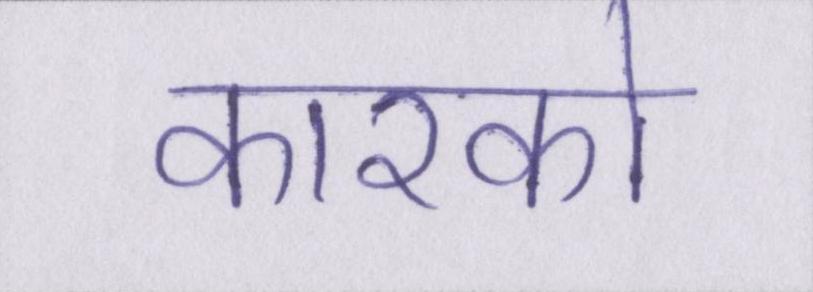 कारको